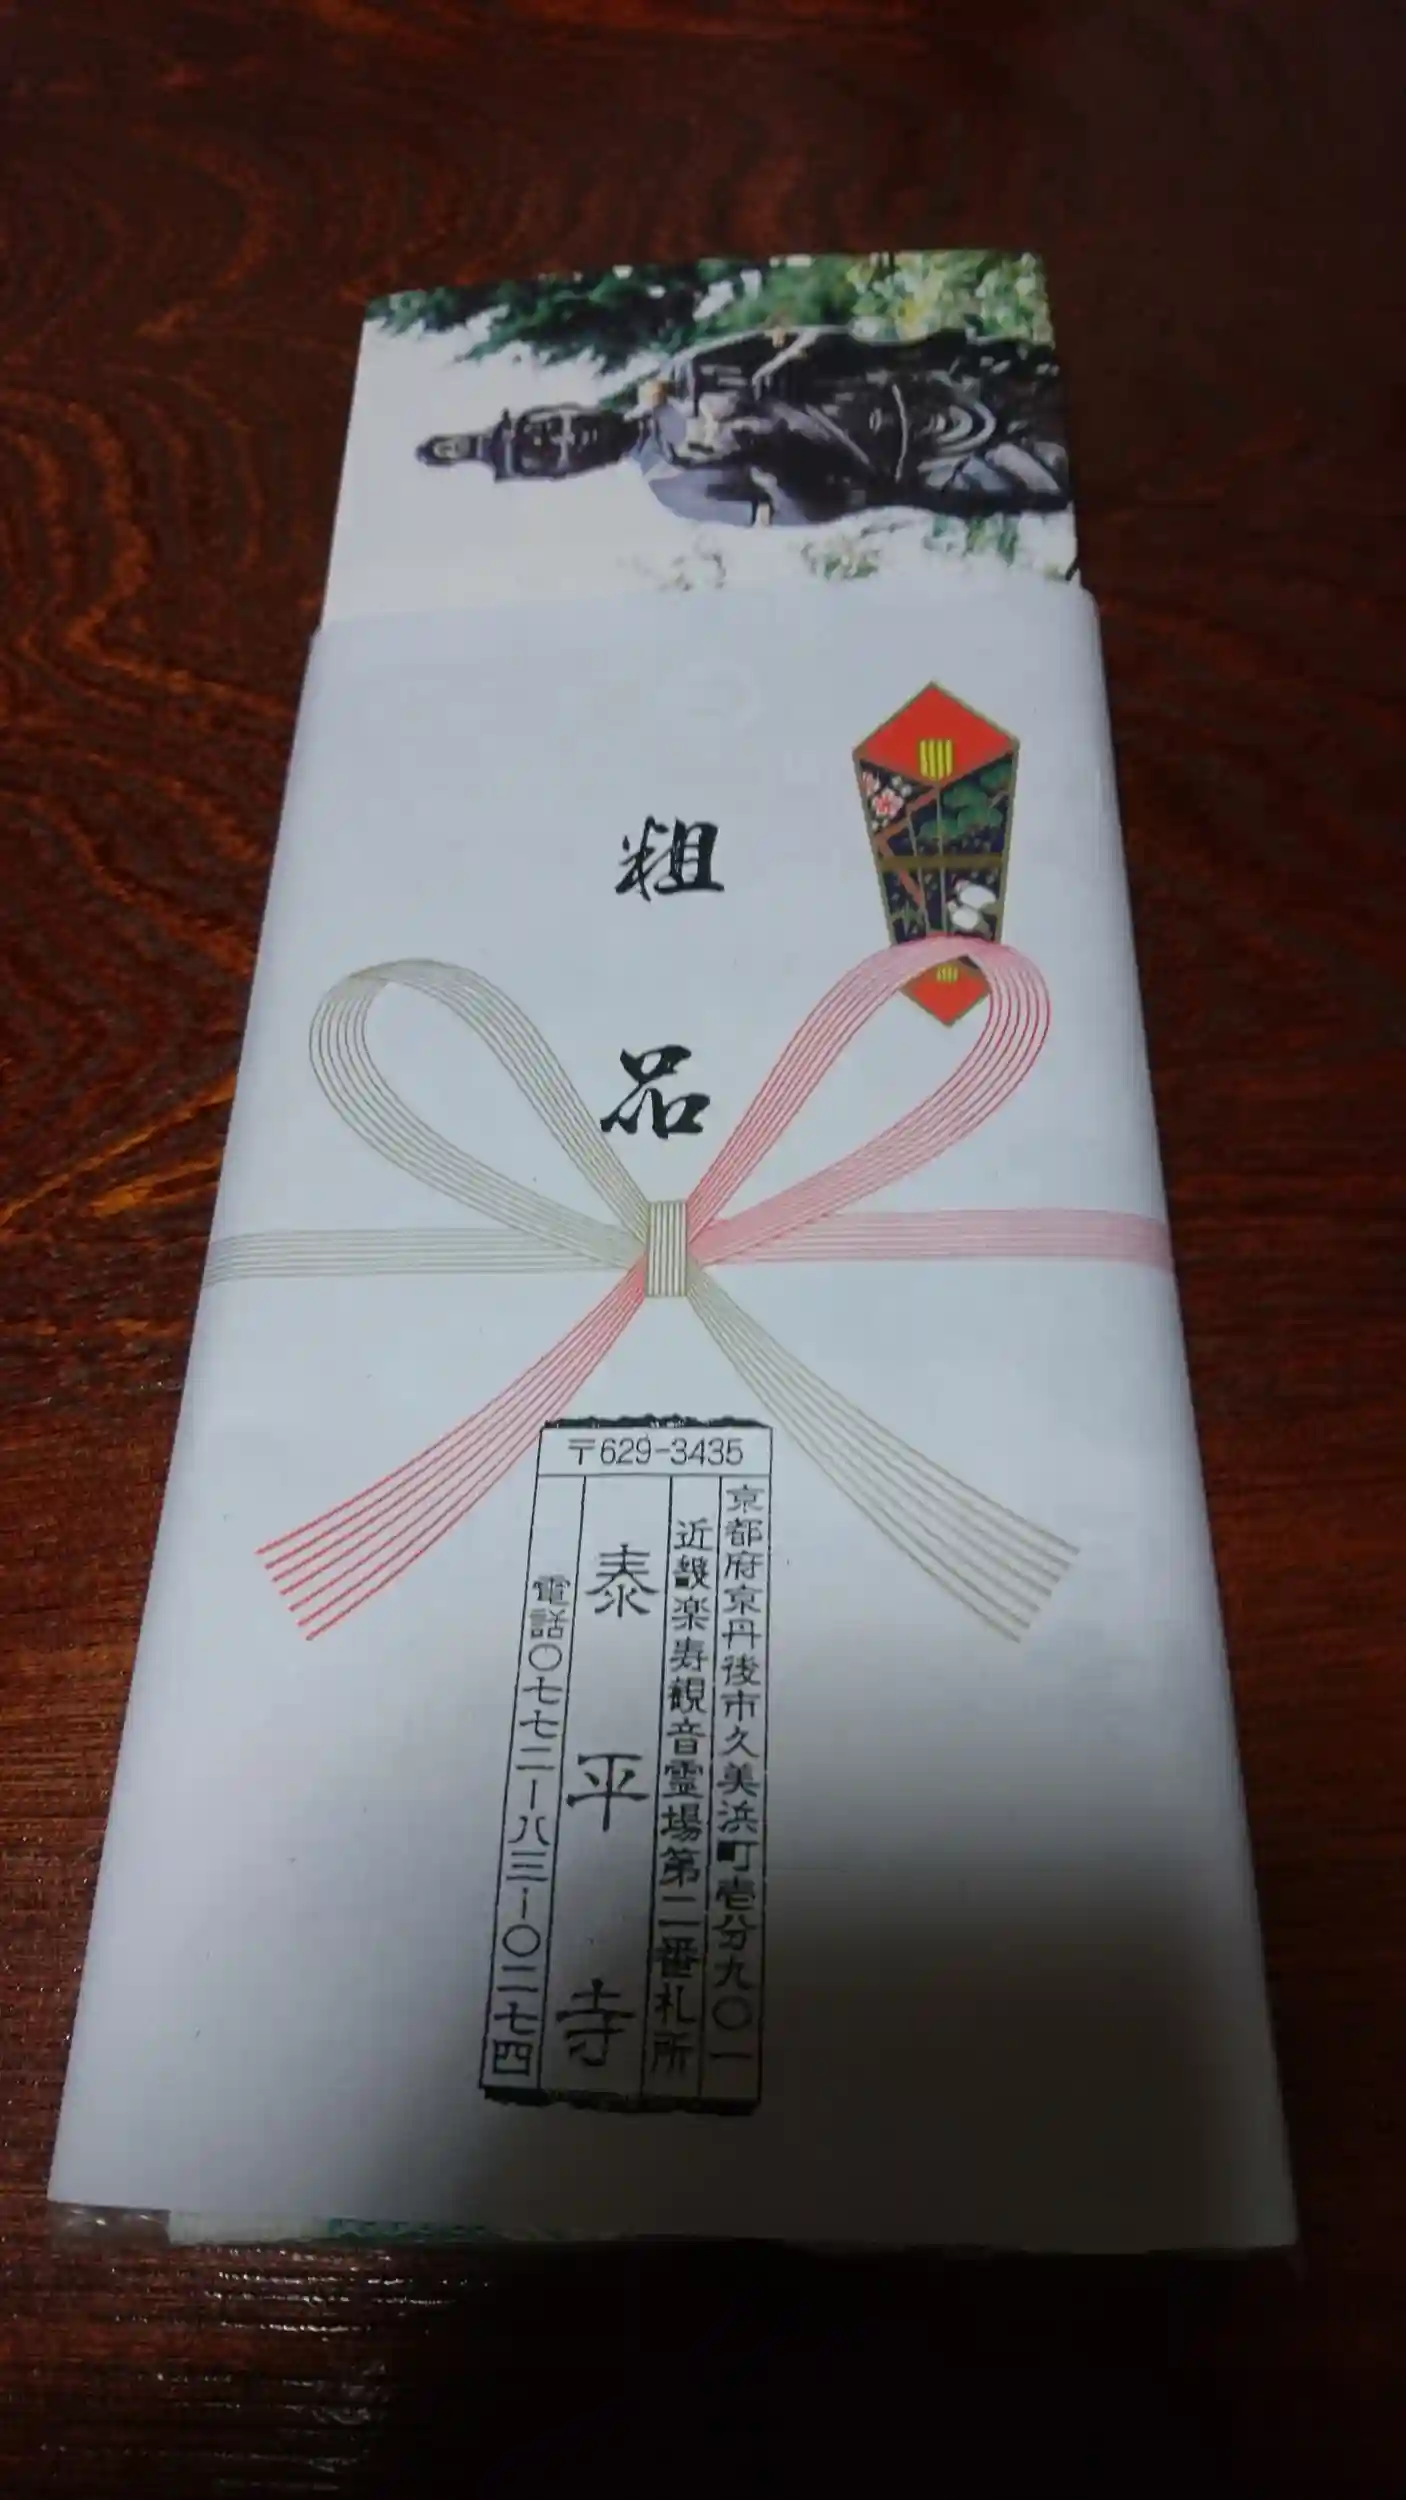 粗品
〒629-3435
京都府京丹後市久美浜町壱分九〇一
近畿楽寿観音霊場第二番札所
泰平寺
電話〇七七二ー八三ー〇二七四